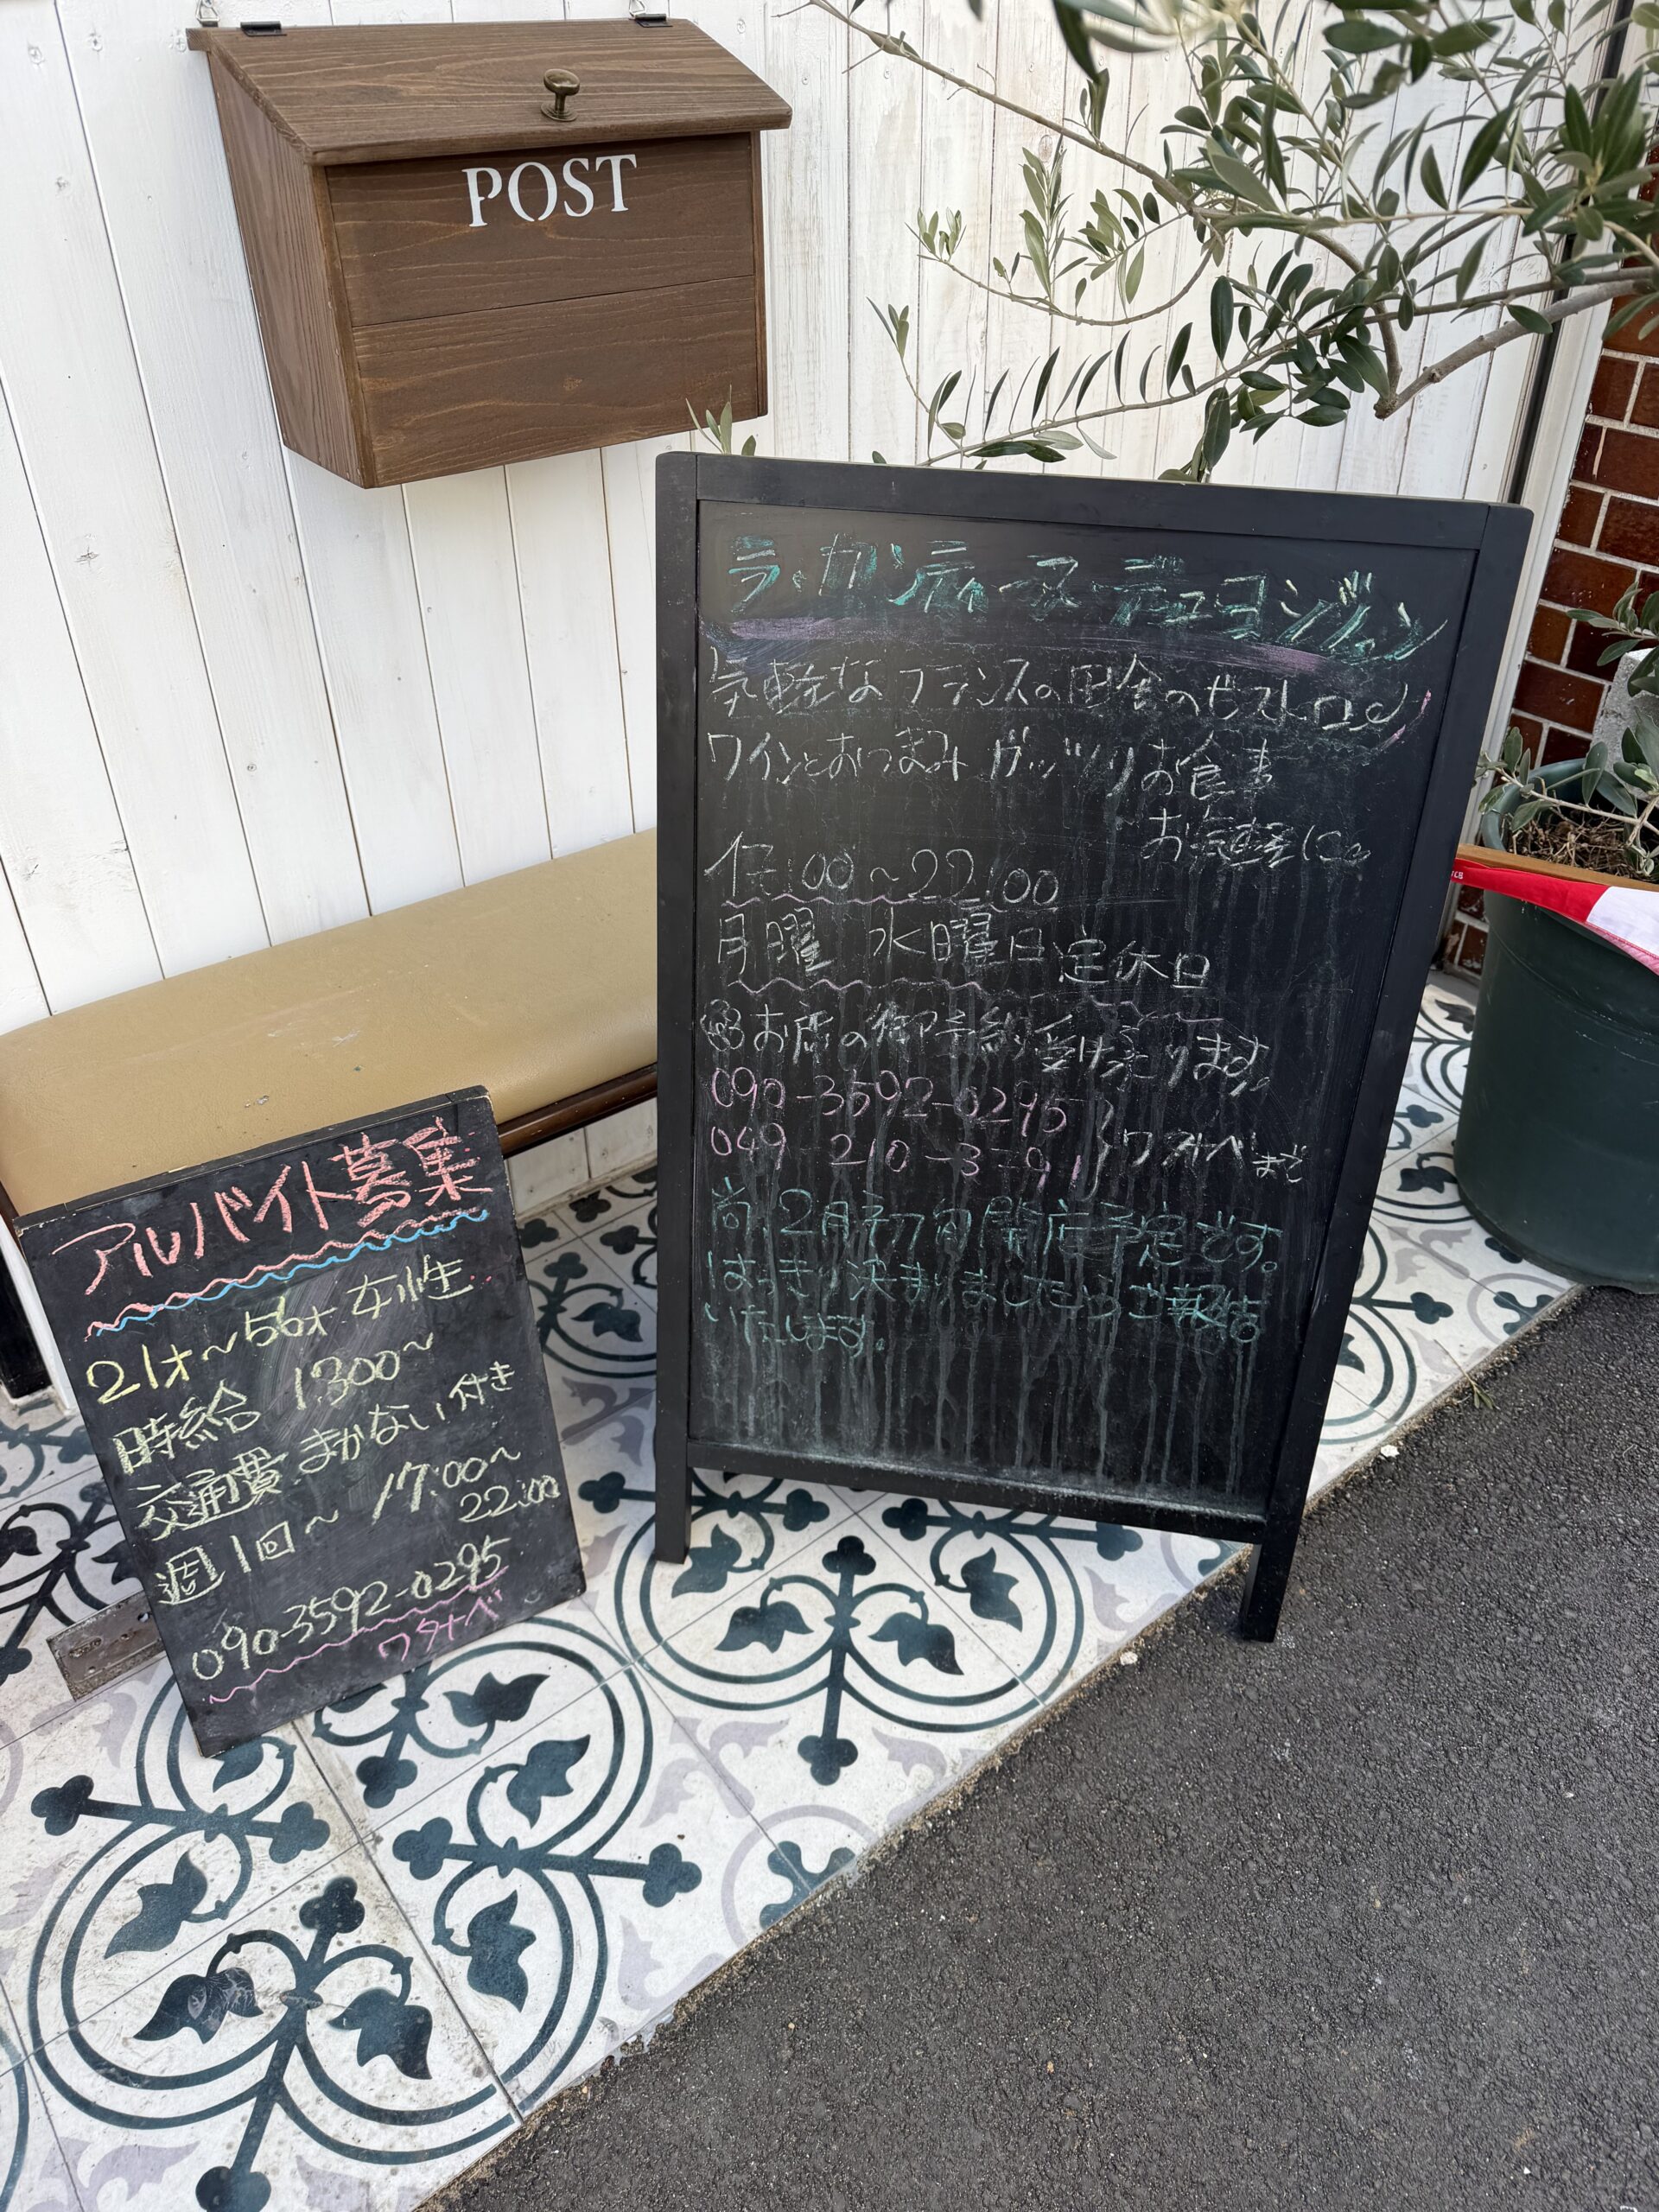 POST
ラ・カンティーヌ・デュ・ヨンジャン
気軽なフランスの田舎のビストロ
ワインとおつまみ ガッツリお食事
お気軽に。
:00〜22:00
月曜 水曜日定休日
お席の御予約受けたまります。
090-3592-0295
049-210-3791
ワタナベまで
尚、2月初旬開店予定です。
はっきり決まりましたらご報告
いたします。
アルバイト募集
21才〜56才 女性
時給 1300〜
交通費 まかない付き
週1回〜 17:00〜
22:00
090-3592-0295
ワタナベ